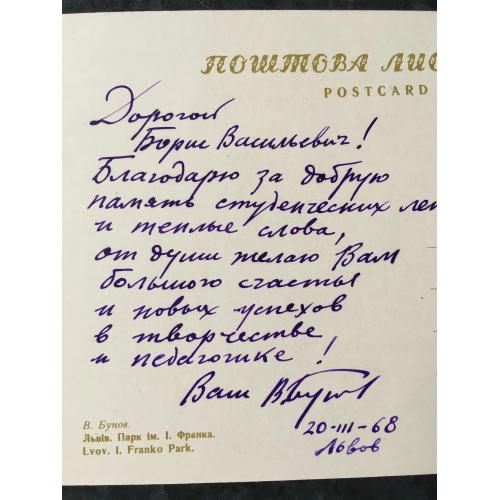 ПОШТОВА ЛИС
POSTCARD
Дорогой
Борис Васильевич!
Благодарю за добрую
память студенческих лет
и теплые слова,
от души желаю Вам
большого счастья
и новых успехов
в творчестве
и педагогике!
Ваш
20-III-68
Львов
В. Бунов.
Львів. Парк ім. І. Франка.
Lvov. I. Franko Park.